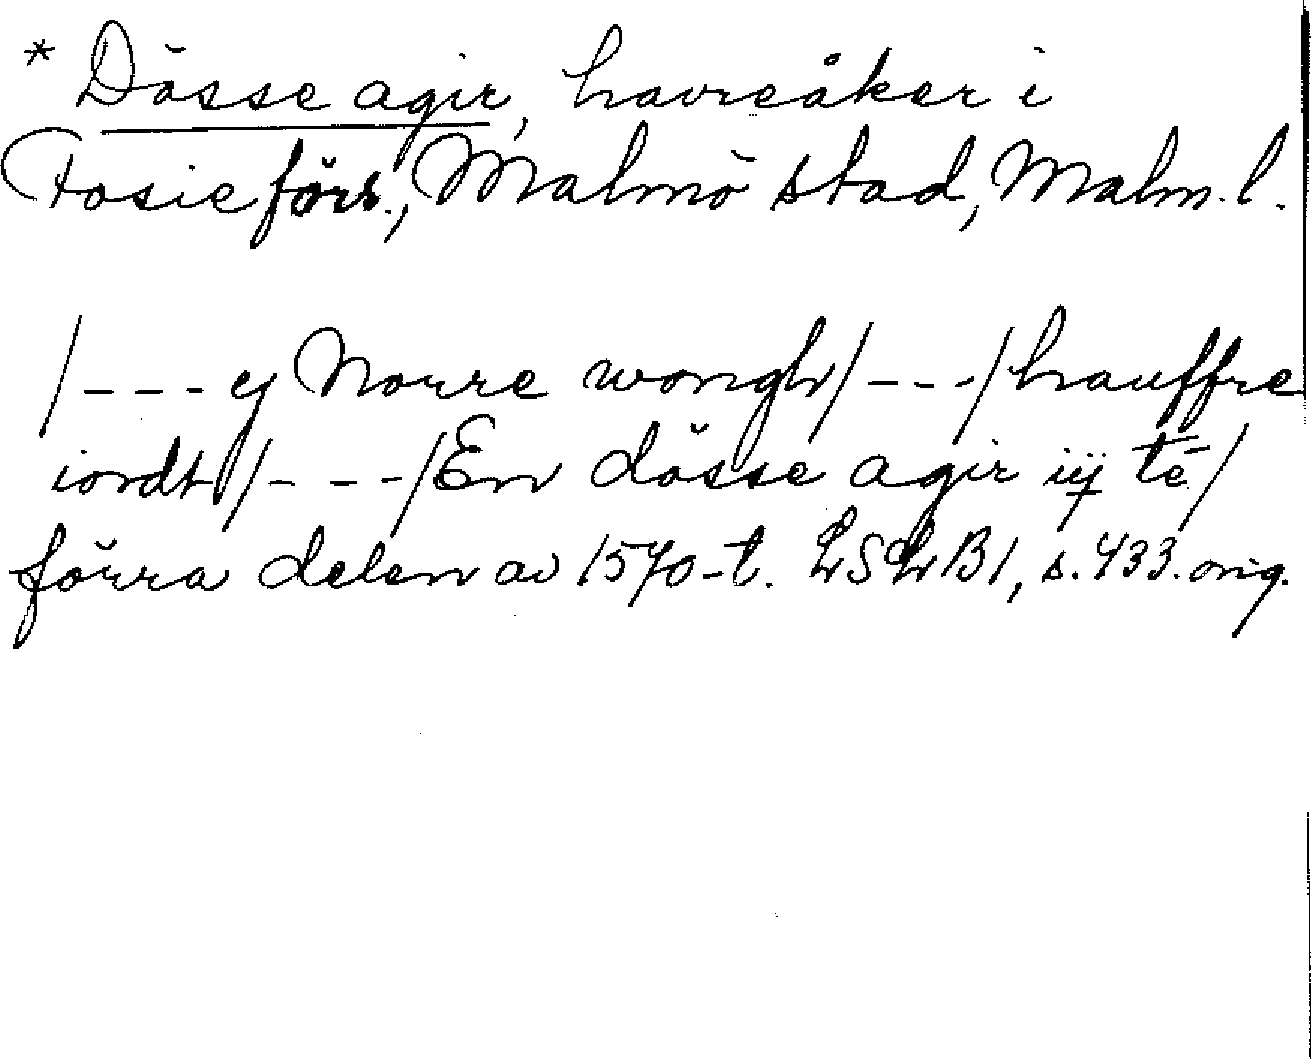 * Dösse agir, havreåker i
Fosie förs., Malmö stad, Malm. l.
/--- ej Norre wongh/---/hauffre
iordt/---/En dösse agir iij té/
förra delen av 1570-t. LSLB1, s. 433. orig.